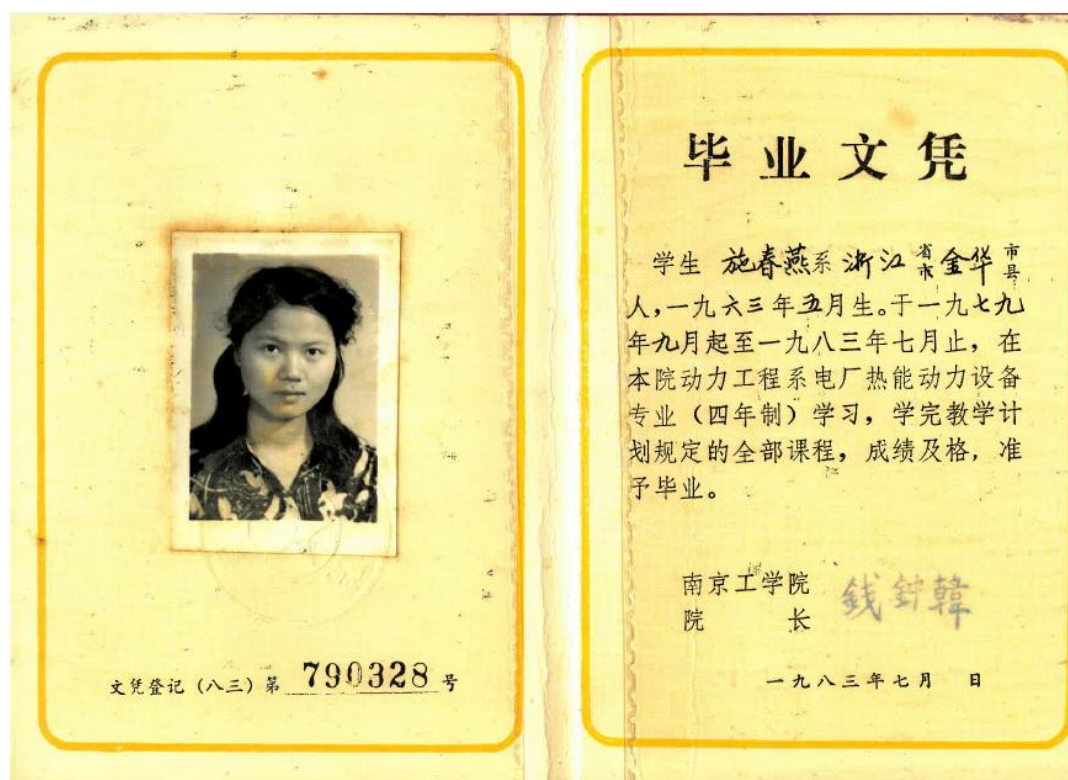 文凭登记(八三)第 790328 号
毕业文凭
学生 施春燕系 浙江 省市 金华 市县
人,一九六三年五月生。于一九七九
年九月起至一九八三年七月止,在
本院动力工程系电厂热能动力设备
专业(四年制)学习,学完教学计
划规定的全部课程,成绩及格,准
予毕业。
南京工学院
院 长 錢鍾韓
一九八三年七月 日